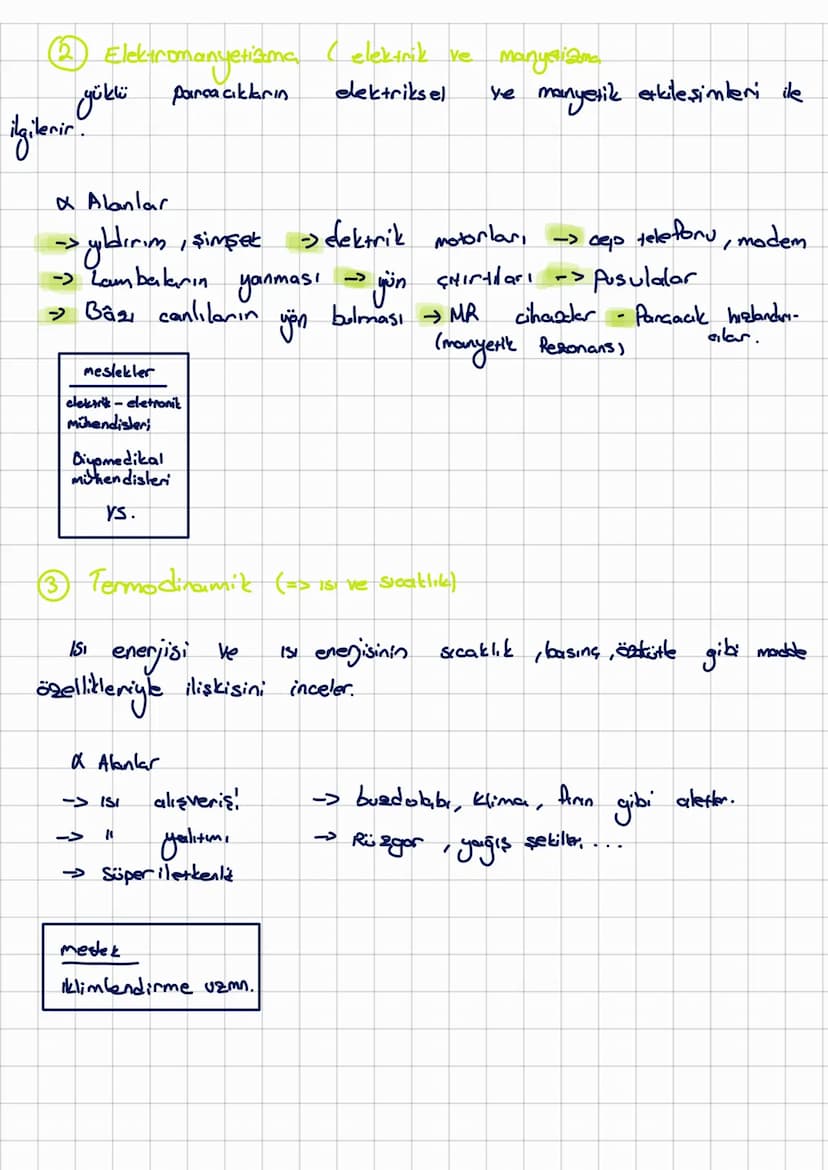 ② Elektromanyetizma ( elektrik ve manyetizma
yüklü parçacıkların elektriksel ve manyetik etkileşimleri ile
ilgilenir.
α Alanlar
-> yıldırım, şimşek -> elektrik motorları -> cep telefonu, modem
-> Lambaların yanması -> yün çıtırtıları -> Pusulalar
-> Bazı canlıların yön bulması -> MR cihazlar - Parçacık hızlandırı-
(manyetik Rezonans) cılar.
meslekler
elektrik - eletronik
mühendisleri
Biyomedikal
mühendisleri
vs.
③ Termodinamik (=> ısı ve sıcaklık)
Isı enerjisi ve ısı enerjisinin sıcaklık, basınç, özkütle gibi madde
özellikleriyle ilişkisini inceler.
α Alanlar
-> ısı alışverişi -> buzdolabı, klima, fırın gibi aletler.
-> " yalıtımı -> Rüzgar, yağış şekiller, ...
-> Süper iletkenlik
meslek
iklimlendirme uzmn.